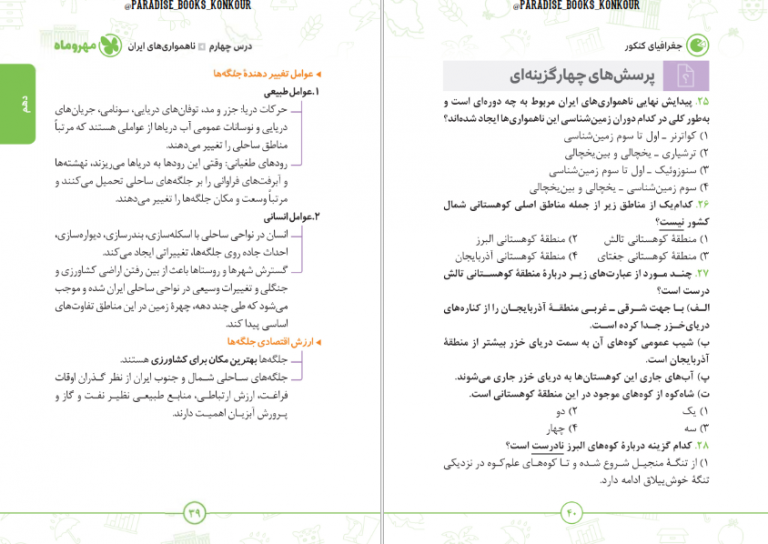 @PARADISE_BOOKS_KONKOUR
جغرافیای کنکور
پرسش‌های چهارگزینه‌ای
۲۵. پیدایش نهایی ناهمواری‌های ایران مربوط به چه دوره‌ای است و
به‌طور کلی در کدام دوران زمین‌شناسی این ناهمواری‌ها ایجاد شده‌اند؟
۱) کواترنر ـ اول تا سوم زمین‌شناسی
۲) ترشیاری ـ یخچالی و بین‌یخچالی
۳) سنوزوئیک ـ اول تا سوم زمین‌شناسی
۴) سوم زمین‌شناسی ـ یخچالی و بین‌یخچالی
۲۶. کدام‌یک از مناطق زیر از جمله مناطق اصلی کوهستانی شمال
کشور نیست؟
۱) منطقهٔ کوهستانی تالش ۲) منطقهٔ کوهستانی البرز
۳) منطقهٔ کوهستانی جغتای ۴) منطقهٔ کوهستانی آذربایجان
۲۷. چند مورد از عبارت‌های زیر دربارهٔ منطقهٔ کوهستانی تالش
درست است؟
الف) با جهت شرقی ـ غربی منطقهٔ آذربایجان را از کناره‌های
دریای‌خزر جدا کرده است.
ب) شیب عمومی کوه‌های آن به سمت دریای خزر بیشتر از منطقهٔ
آذربایجان است.
پ) آب‌های جاری این کوهستان‌ها به دریای خزر جاری می‌شوند.
ت) شاه‌کوه از کوه‌های موجود در این منطقهٔ کوهستانی است.
۱) یک ۲) دو
۳) سه ۴) چهار
۲۸. کدام گزینه دربارهٔ کوه‌های البرز نادرست است؟
۱) از تنگهٔ منجیل شروع شده و تا کوه‌های علم‌کوه در نزدیکی
تنگهٔ خوش‌ییلاق ادامه دارد.
۴۰
@PARADISE_BOOKS_KONKOUR
درس چهارم ناهمواری‌های ایران مهروماه
دهم
عوامل تغییر دهندهٔ جلگه‌ها
۱.عوامل طبیعی
حرکات دریا: جزر و مد، توفان‌های دریایی، سونامی، جریان‌های
دریایی و نوسانات عمومی آب دریاها از عواملی هستند که مرتباً
مناطق ساحلی را تغییر می‌دهند.
رودهای طغیانی: وقتی این رودها به دریاها می‌ریزند، نهشته‌ها
و آبرفت‌های فراوانی را بر جلگه‌های ساحلی تحمیل می‌کنند و
مرتباً وسعت و مکان جلگه‌ها را تغییر می‌دهند.
۲.عوامل انسانی
انسان در نواحی ساحلی با اسکله‌سازی، بندرسازی، دیواره‌سازی،
احداث جاده روی جلگه‌ها، تغییراتی ایجاد می‌کند.
گسترش شهرها و روستاها باعث از بین رفتن اراضی کشاورزی و
جنگلی و تغییرات وسیعی در نواحی ساحلی ایران شده و موجب
می‌شود که طی چند دهه، چهرهٔ زمین در این مناطق تفاوت‌های
اساسی پیدا کند.
ارزش اقتصادی جلگه‌ها
جلگه‌ها بهترین مکان برای کشاورزی هستند.
جلگه‌های ساحلی شمال و جنوب ایران از نظر گذران اوقات
فراغت، ارزش ارتباطی، منابع طبیعی نظیر نفت و گاز و
پرورش آبزیان اهمیت دارند.
۳۹